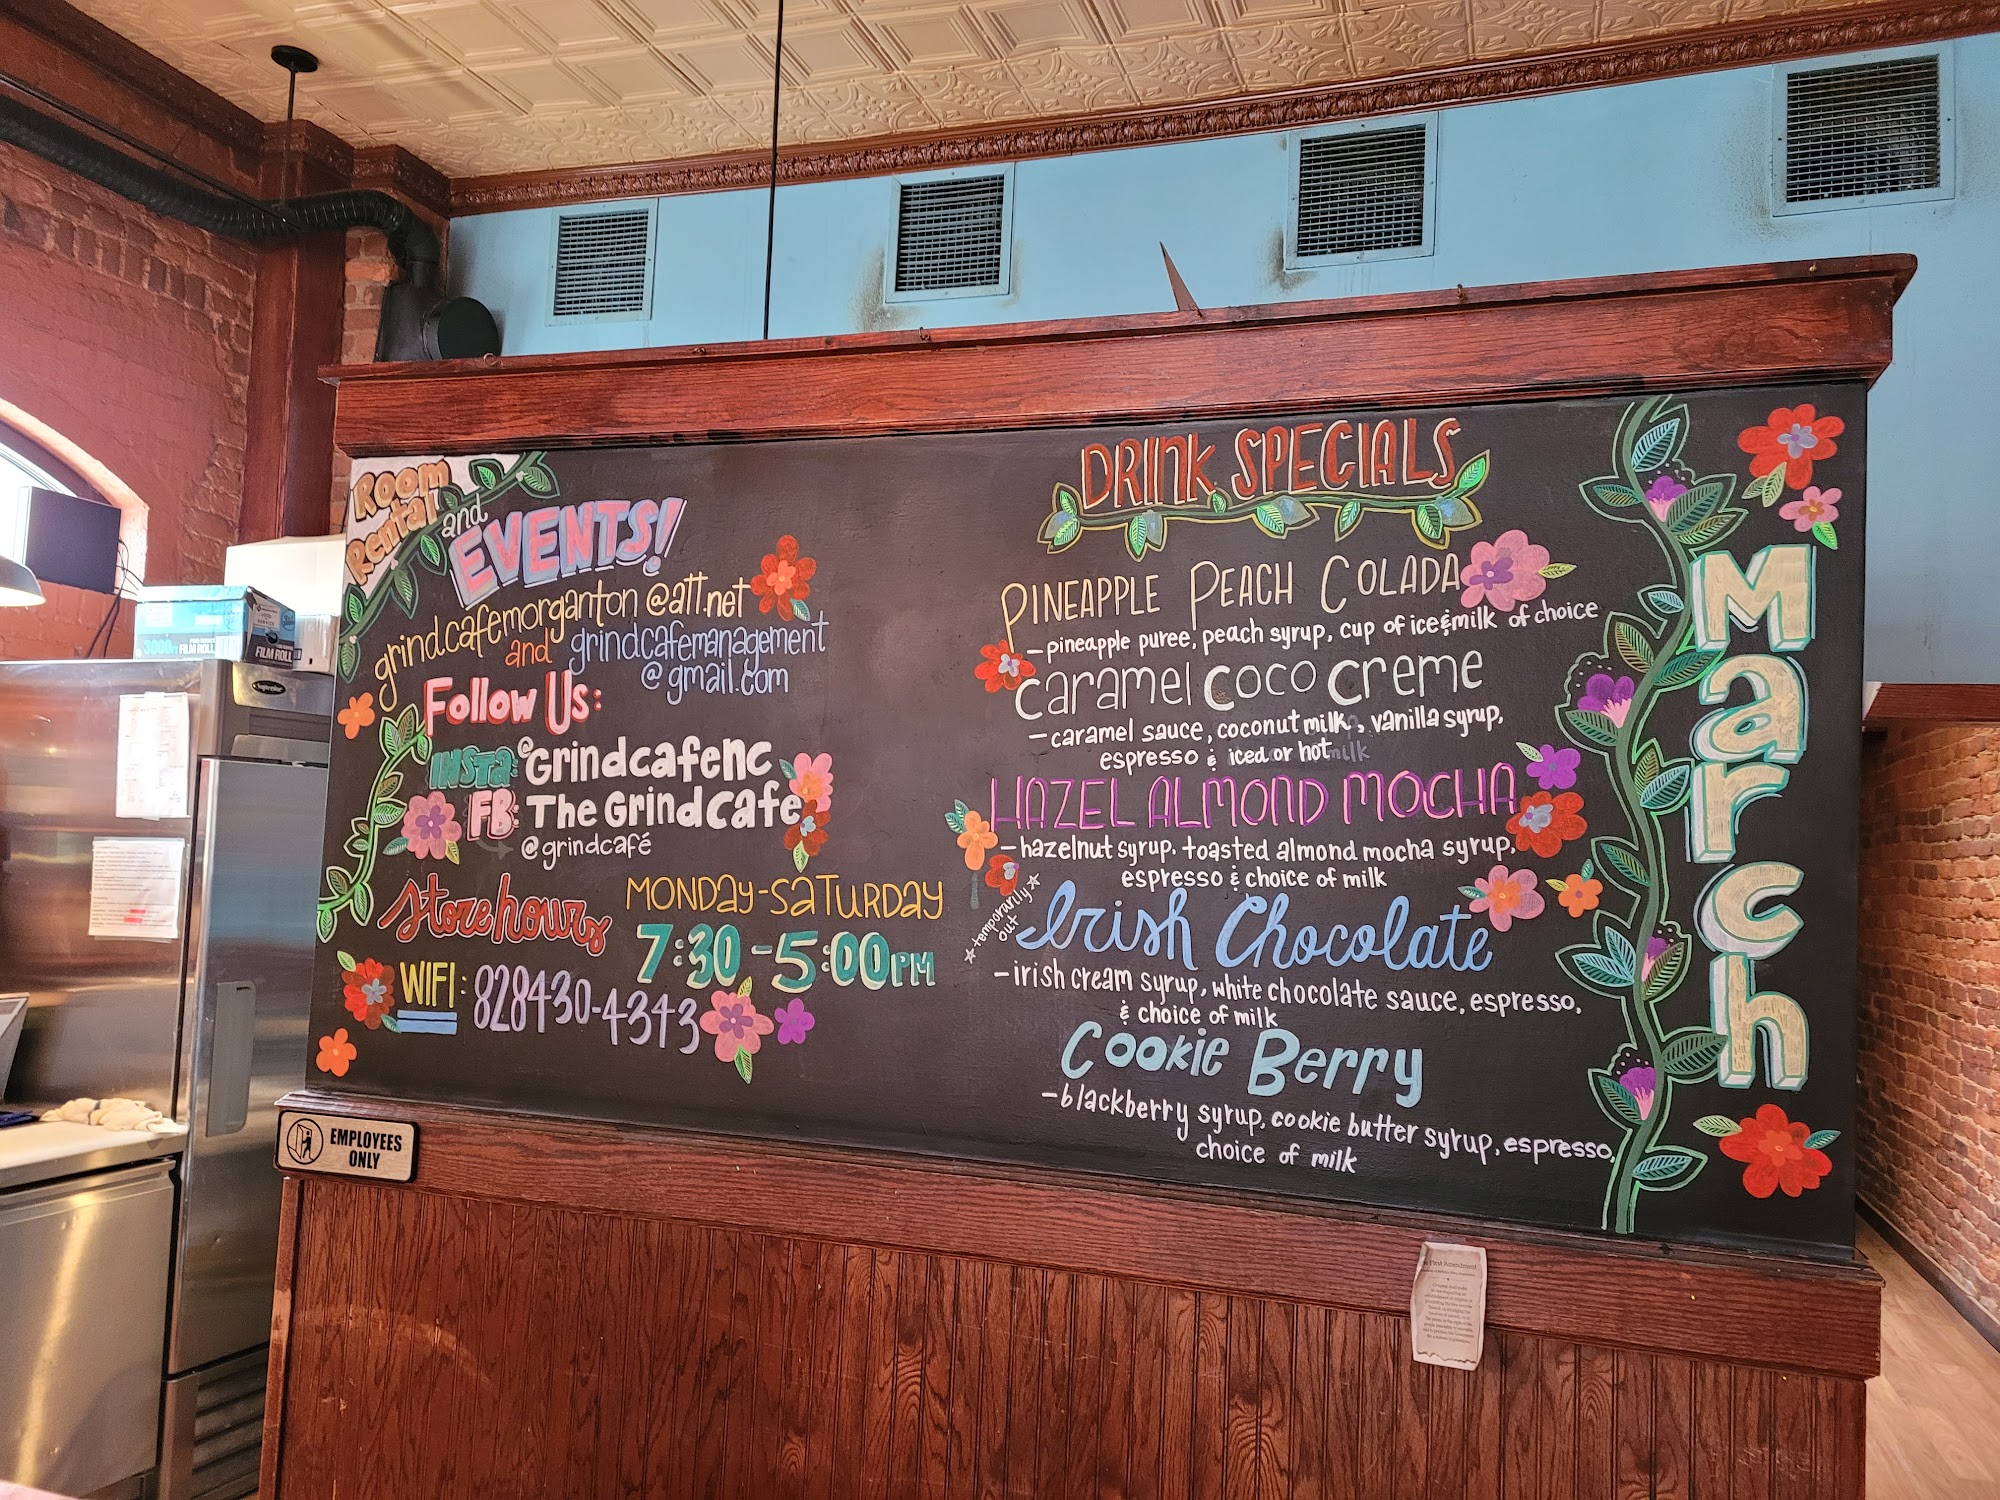 Room
Rental
and
EVENTS!
grindcafemorganton@att.net
and grindcafemanagement
@gmail.com
Follow Us:
INSTA: @Grindcafenc
FB: The Grind Cafe
@grindcafé
Store hours
MONDAY-SATURDAY
7:30-5:00PM
WIFI: 828430-4343
DRINK SPECIALS
PINEAPPLE PEACH COLADA
-pineapple puree, peach syrup, cup of ice & milk of choice
Caramel Coco Creme
-caramel sauce, coconut milk, vanilla syrup,
espresso & iced or hot
HAZEL ALMOND MOCHA
-hazelnut syrup. toasted almond mocha syrup,
espresso & choice of milk
temporarily
out
Irish Chocolate
-irish cream syrup, white chocolate sauce, espresso,
& choice of milk
Cookie Berry
-blackberry syrup, cookie butter syrup, espresso,
choice of milk
March
EMPLOYEES
ONLY
3000FT FILM ROLL
FILM ROLL
First Amendment